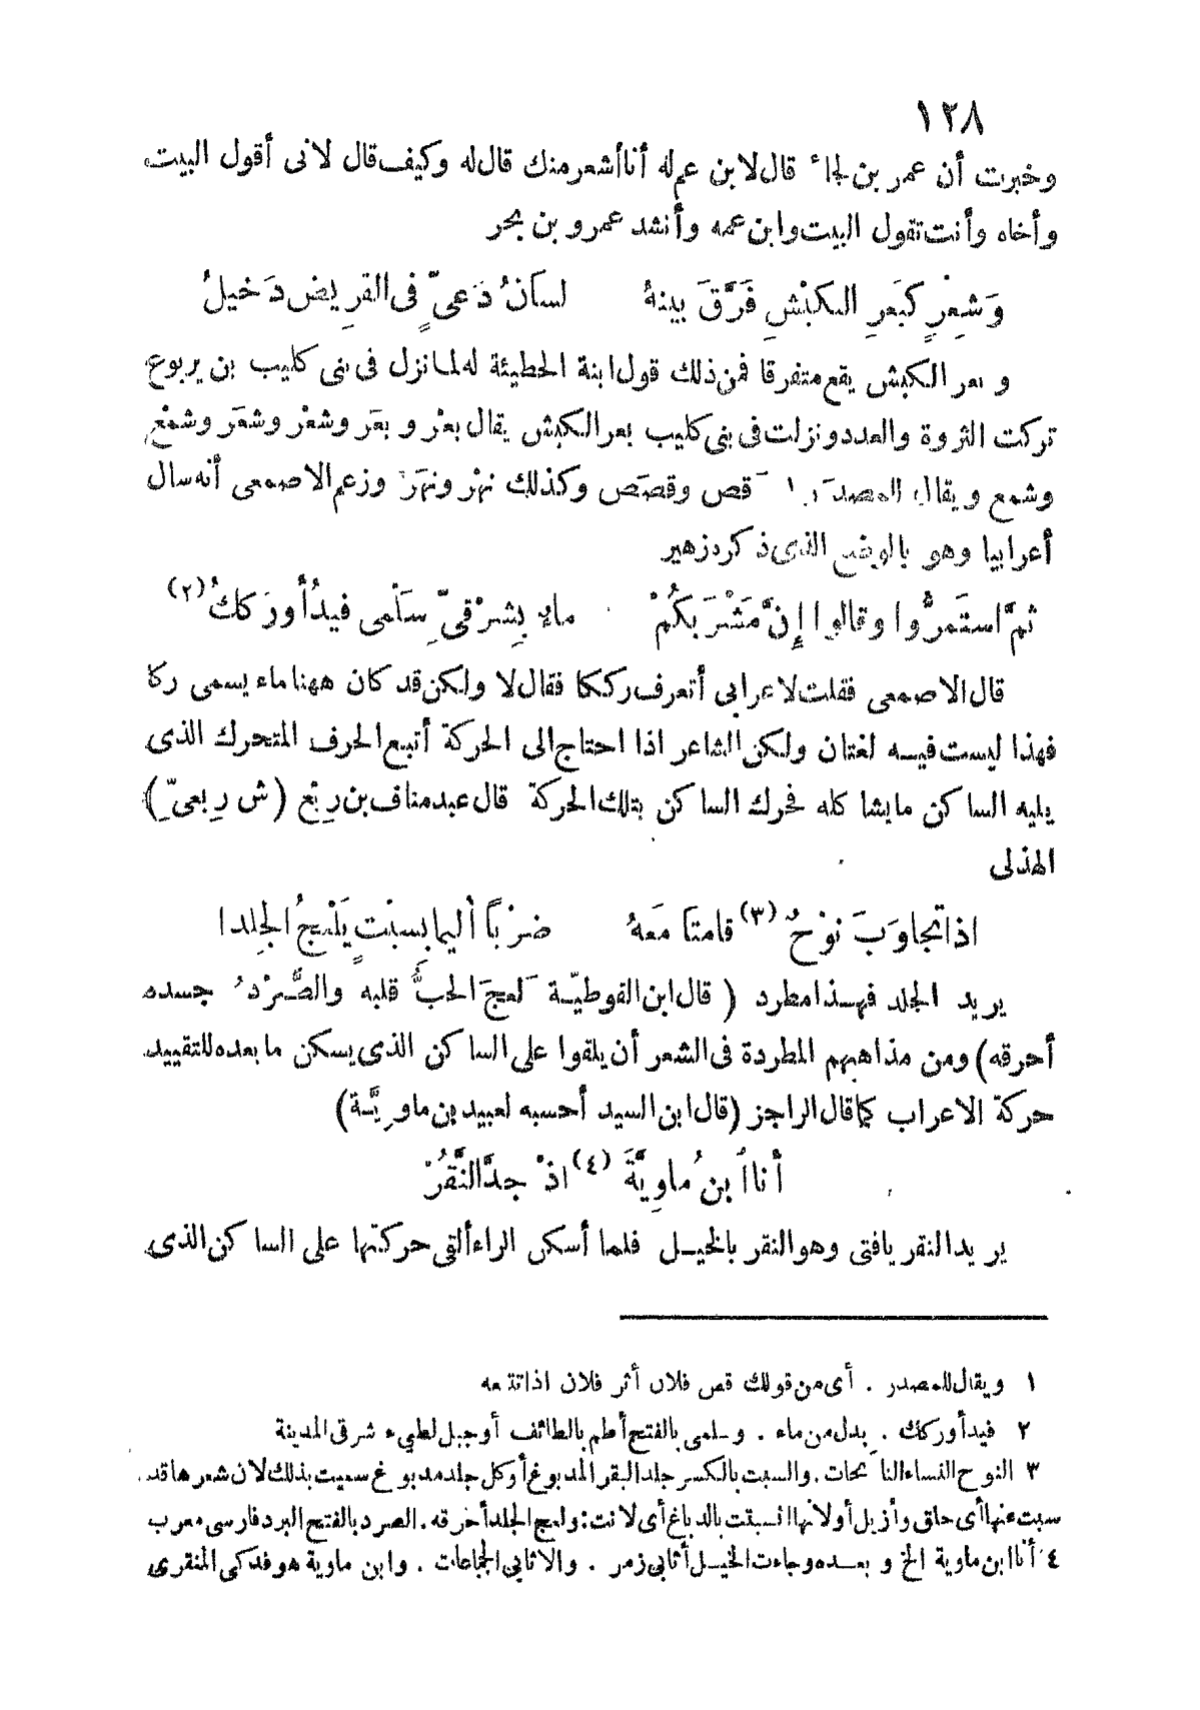 ١٢٨
وخبرت أن عمر بن لجاء قال لابن عم له أنا أشعر منك قال له وكيف قال لانى أقول البيت
وأخاه وأنت تقول البيت وابن عمه وأنشد عمرو بن بحر
وَشِعْرٍ كبَعَرِ الكبْشِ فَرَّقَ بينهُ لسانُ دَعىٍّ فى القرِيض دَخيلُ
و بعر الكبش يقع متفرقا فمن ذلك قول ابنة الحطيئة له لما نزل فى بنى كليب بن يربوع
تركت الثروة والعدد ونزلت فى بنى كليب بعر الكبش يقال بعْر و بعَر وشعْر وشعَر وشمْع
وشمع ويقال للمصدر ١ قص وقصَص وكذلك نهْر ونهَر وزعم الاصمعى أنه سال
أعرابيا وهو بالموضع الذى ذكره زهير
ثمَّ استَمرُّوا وقالوا إنَّ مَشْرَبكُمْ ماء بِشرْقىِّ سَلْمى فيدُ أورَككُ (٢)
قال الاصمعى فقلت لاعرابى أتعرف رككا فقال لا ولكن قد كان ههنا ماء يسمى ركا
فهذا ليست فيه لغتان ولكن الشاعر اذا احتاج الى الحركة أتبع الحرف المتحرك الذى
يليه الساكن ما يشا كله فحرك الساكن بتلك الحركة قال عبد مناف بن رِبْع (ش رِبعىِّ)
الهذلى
اذا تجاوَبَ نوْحٌ (٣) قامتا مَعهُ ضرْباً أليما بسبْتٍ يَلْعجُ الجِلدا
يريد الجلد فهذا مطرد (قال ابن القوطيّة لَعجَ الحبُّ قلبه والصَّرْدُ جسده
أحرقه) ومن مذاهبهم المطردة فى الشعر أن يلقوا على الساكن الذى يسكن ما بعده للتقييد
حركة الاعراب كما قال الراجز (قال ابن السيد أحسبه لعبيد بن ماوِيَّة)
أنا ابنُ ماوِيَّةَ (٤) اذْ جدَّ النَّقُرْ
يريد النقر يافتى وهو النقر بالخيل فلما أسكن الراء ألقى حركتها على الساكن الذى
١ ويقال للمصدر . أى من قولك قص فلان أثر فلان اذا تتبعه
٢ فيد أوركك . بدل من ماء . وسلمى بالفتح أطم بالطائف أو جبل لطيء شرقى المدينة
٣ النوح النساء النائحات . والسبت بالكسر جلد البقر المدبوغ أو كل جلد مدبوغ سميت بذلك لان شعرها قد
سبت عنها أى حلق وأزيل أو لانها انسبتت بالدباغ أى لانت: ولعج الجلد أحرقه . الصرد بالفتح البرد فارسى معرب
٤ أنا ابن ماوية الخ و بعده وجاءت الخيل أثابى زمر . والاثابى الجماعات . وابن ماوية هو فدكى المنقرى